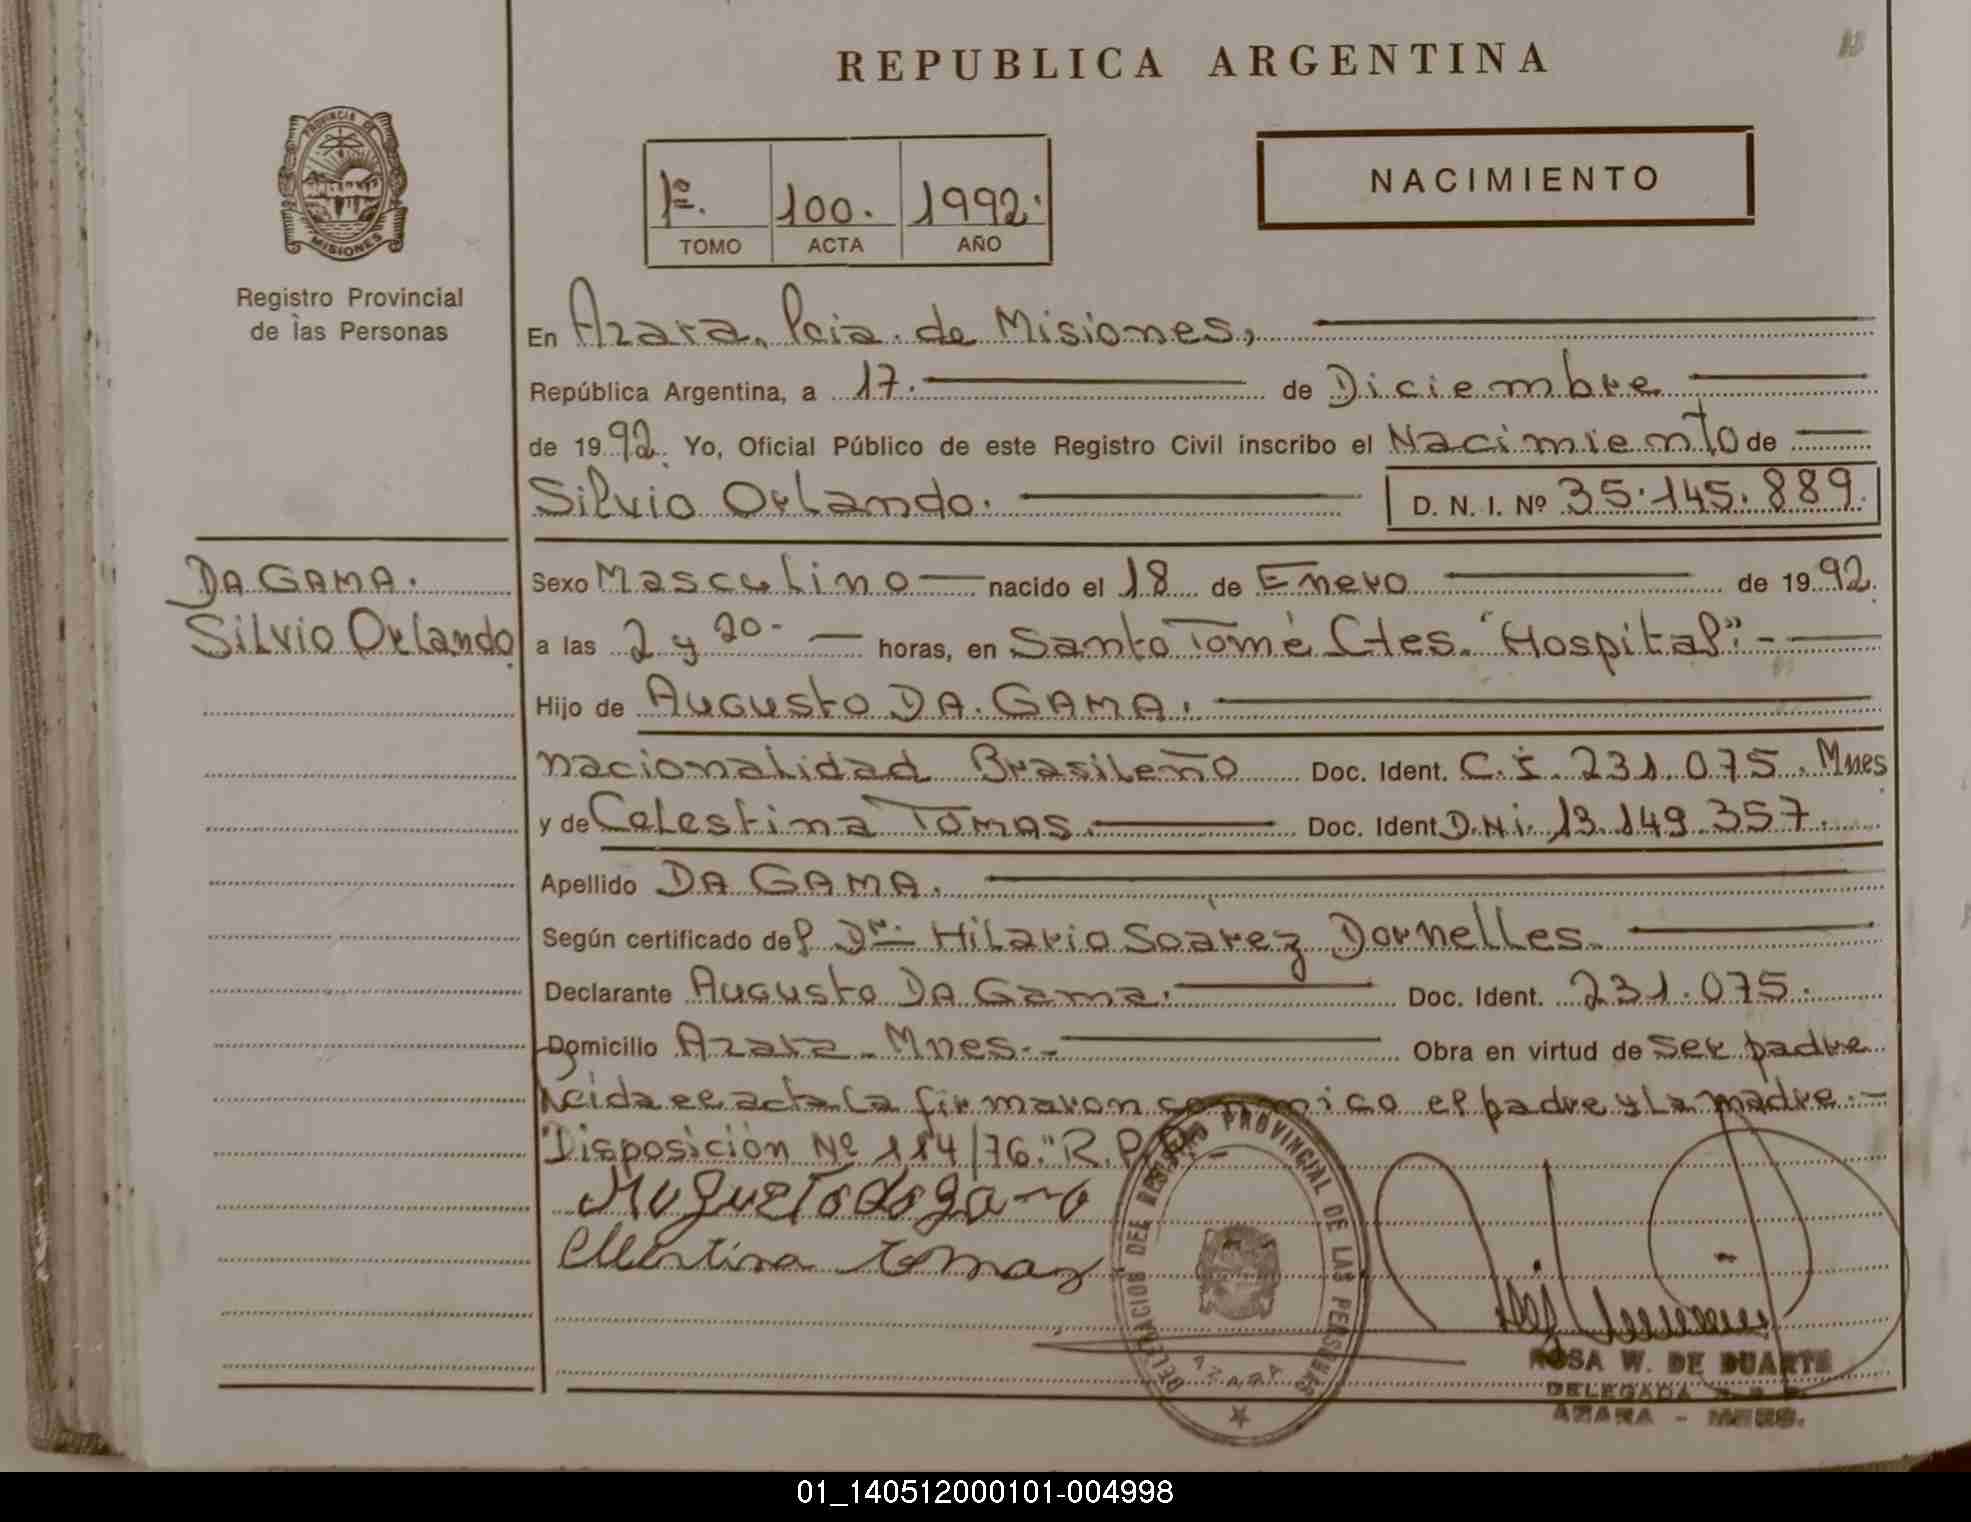 REPUBLICA ARGENTINA
PROVINCIA DE
MISIONES
Registro Provincial
de las Personas
NACIMIENTO
1º. 100. 1992.
TOMO ACTA AÑO
En Azara, Pcia. de Misiones,
República Argentina, a 17. de Diciembre
de 1992. Yo, Oficial Público de este Registro Civil inscribo el Nacimiento de
Silvio Orlando. D. N. I. Nº 35.145.889.
DA GAMA.
Silvio Orlando
Sexo Masculino nacido el 18 de Enero de 1992.
a las 2 y 20- horas, en Santo Tomé Ctes. "Hospital".-
Hijo de Augusto DA GAMA.
nacionalidad Brasileño Doc. Ident. C.I. 231.075. Mnes
y de Celestina TOMAS. Doc. Ident D.N.i. 13.149.357.
Apellido DA GAMA.
Según certificado del Dr. Hilario Soarez Dornelles.
Declarante Augusto DA Gama. Doc. Ident. 231.075.
Domicilio Azara - Mnes.- Obra en virtud de ser padre
Leida el acta la firmaron conmigo el padre y la madre.-
"Disposición Nº 114/76." R.P.P.-
DELEGACION DEL REGISTRO PROVINCIAL DE LAS PERSONAS
AZARA
ROSA W. DE DUARTE
DELEGADA
AZARA - MNES.
01_140512000101-004998